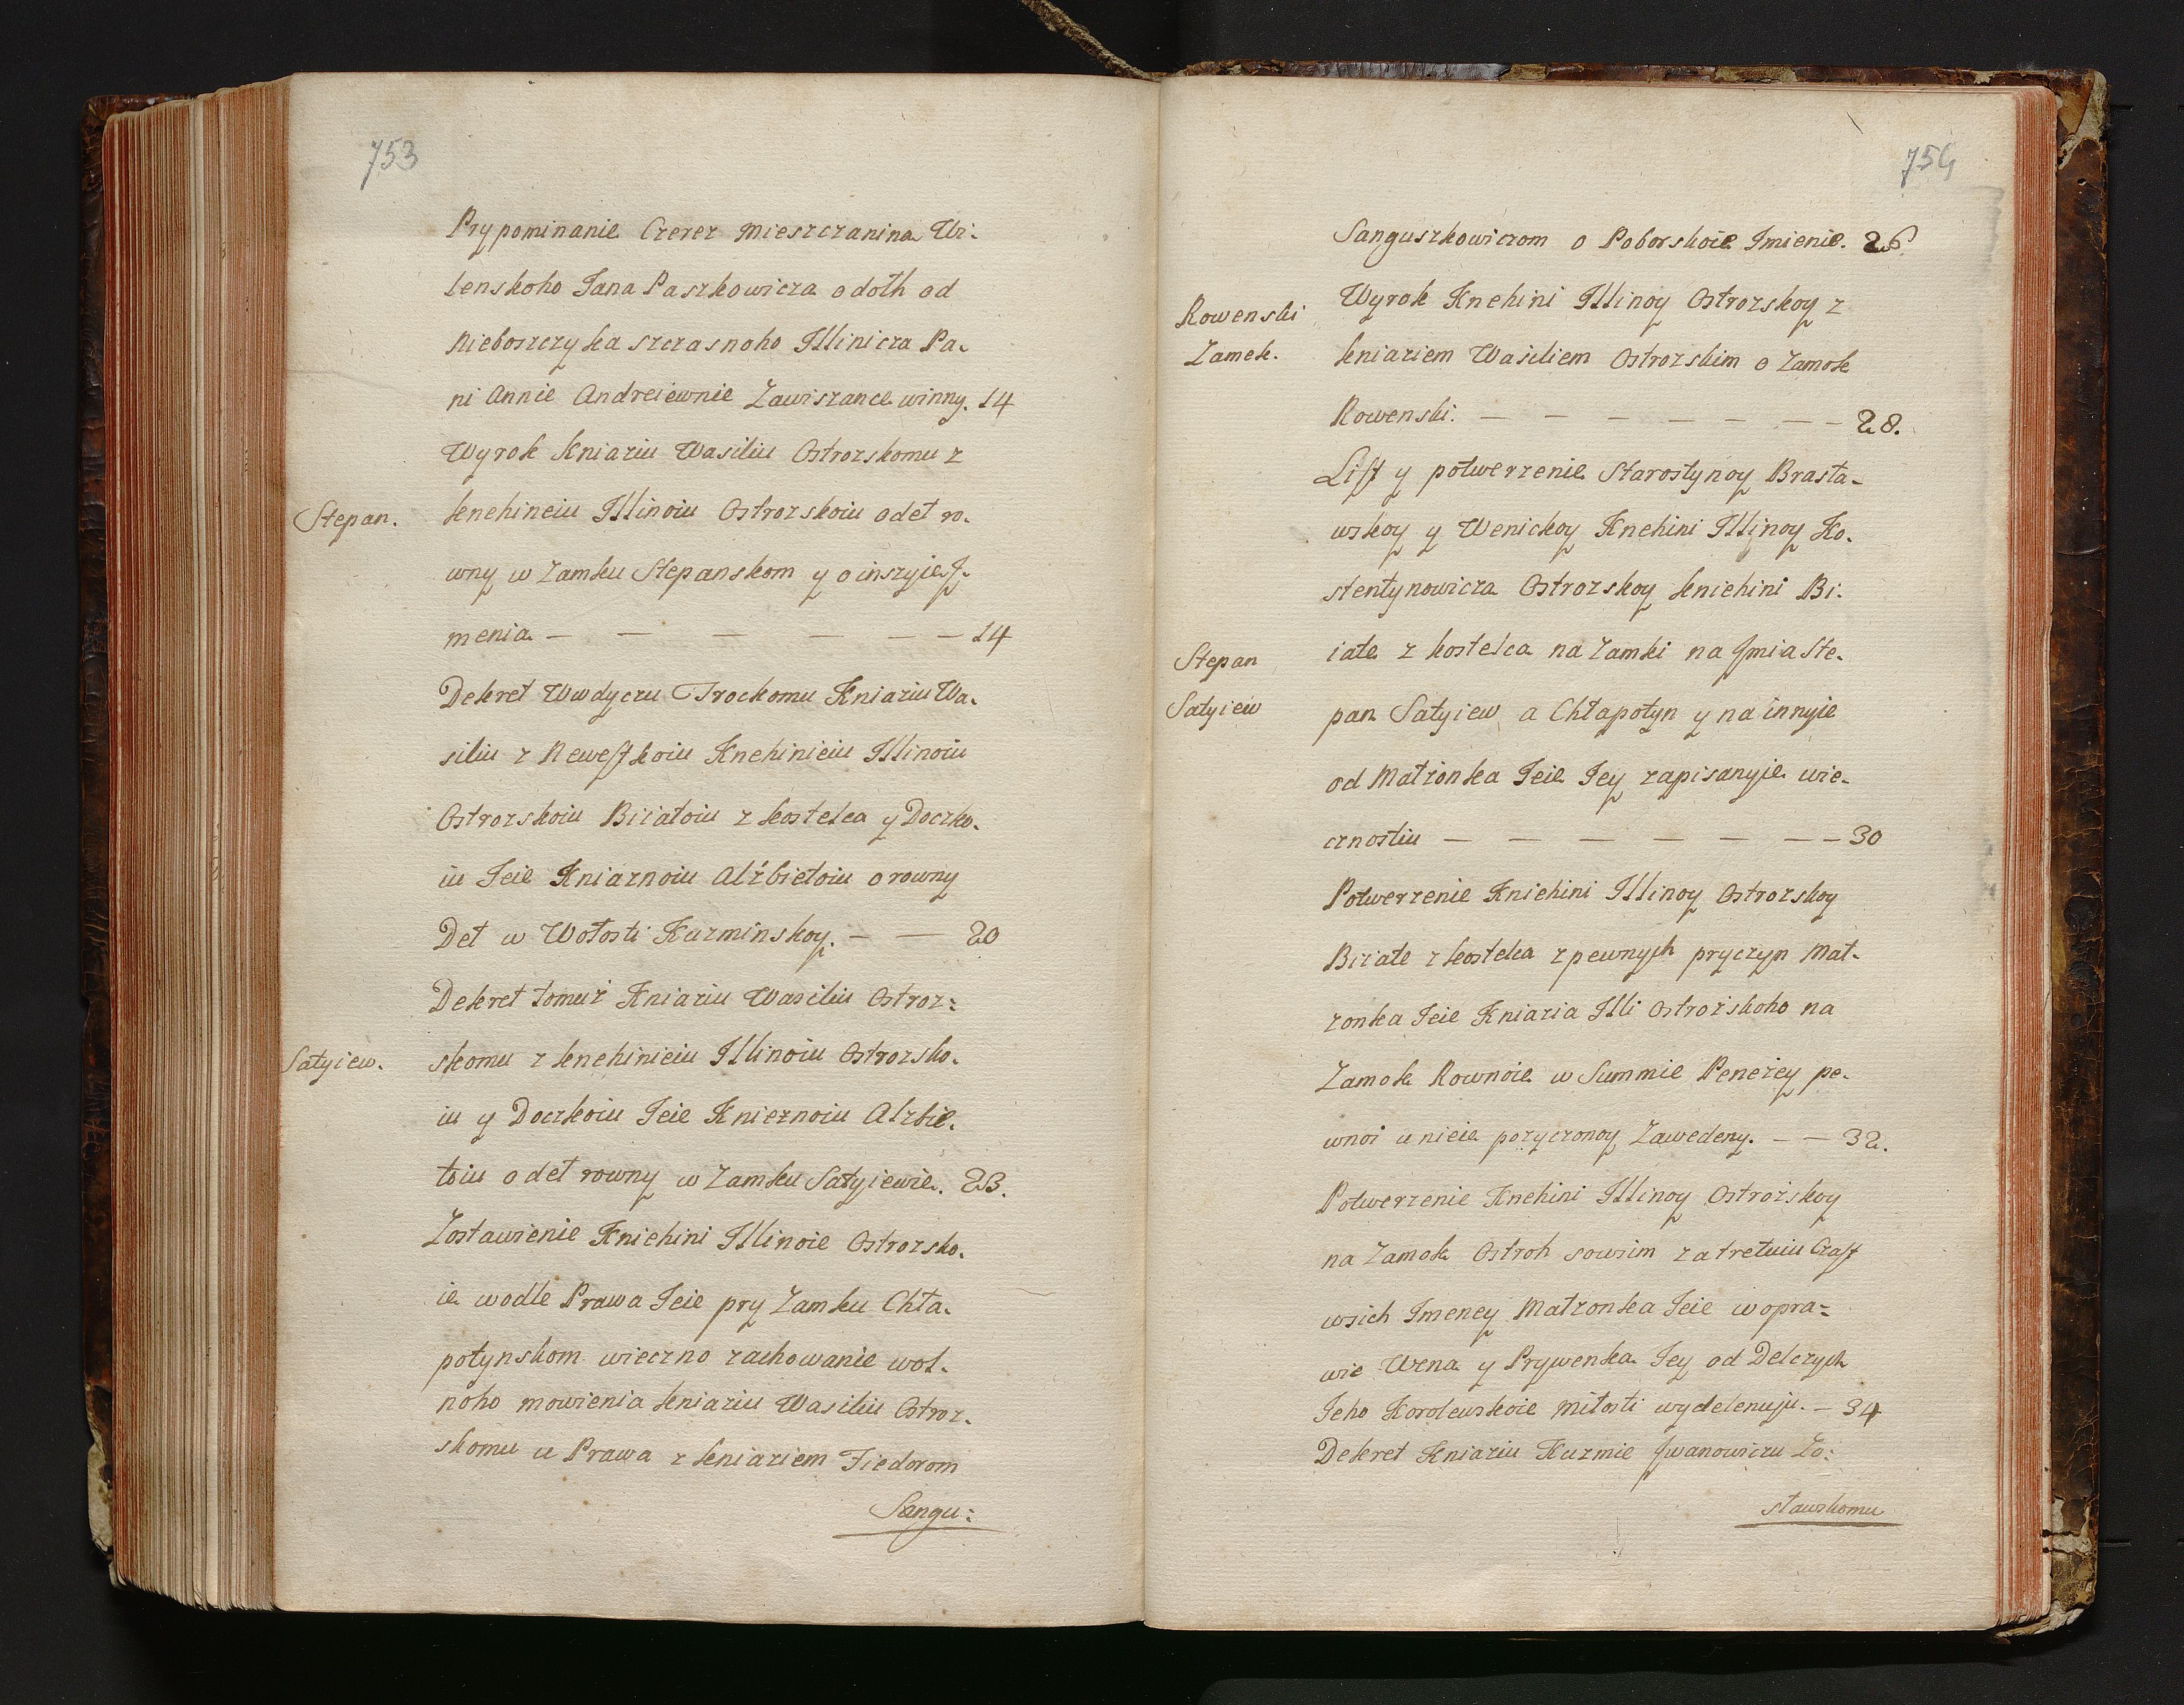 753
Prypominanie Czerez Mieszczanina Wi:
lenskoho Jana Paszkowicza o dolh od
Nieboszczyka szczasnoho Illinicza Pa-
ni Annie Andreiewnie Zawiszance winny. 14
Wyrok Kniaziu Wasiliu Ostrozskomu z
Stepan.
knehineiu Illinoiu Ostrozskoiu o det ro-
wny w Zamku Stepanskom y o inszyie J-
menia — — — — — — 14
Dekret Wwdyczu Trockomu Kniaziu Wa-
siliu z Newestkoiu Knehinieiu Illinoiu
Ostrozskoiu Biiatoiu z kostelca y Doczko-
iu Jeie Kniaznoiu Alźbietoiu o rowny
Det w Wołosti Kuzminskoy. — — 20
Dekret tomuż Kniaziu Wasiliu Ostroz:
Satyiew.
skomu z knehinieiu Illinoiu Ostrozsko-
iu y Doczkoiu Jeie Knieznoiu Alzbie-
toiu o det rowny w Zamku Satyiewie. 23.
Zostawienie Kniehini Illinoie Ostrozsko-
ie wodle Prawa Jeie pry Zamku Chła-
potynskom wieczno zachowanie wol-
noho mowienia kniaziu Wasiliu Ostroz-
skomu u Prawa z kniaziem Fiedorom
Sangu:
754
Sanguszkowiczom o Poborskoie Jmienie. 26.
Rowenski
Zamek.
Wyrok Knehini Illinoy Ostrozskoy z
kniaziem Wasiliem Ostrozskim o Zamok
Rowenski. — — — — — — — 28.
List y potwerzenie Starostynoy Brasła-
wskoy y Wenickoy Knehini Illinoy Ko-
stentynowicza Ostrozskoy kniehini Bi-
Stepan
Satyiew
iate z kostelca na Zamki na Jmia Ste-
pan Satyiew a Chłapotyn y na innyie
od Matzonka Jeie Jey zapisanyie wie-
cznostiu — — — — — — — 30
Potwerzenie Kniehini Illinoy Ostrozskoy
Biiate z kostelca z pewnych pryczyn Mat-
zonka Jeie Kniazia Illi Ostrożskoho na
Zamok Rownoie w Summie Peneżey pe-
wnoi u nieie pozyczonoy Zawedeny. — — 32.
Potwerzenie Knehini Illinoy Ostrożskoy
na Zamok Ostroh sowsim za tretuiu Czast
wsich Jmeney Matzonka Jeie w opra-
wie Wena y Prywenka Jey od Delczych
Jeho Korolewskoie Miłosti wydelenuju. — 34
Dekret Kniaziu Kuzmie Jwanowiczu Za:
sławskomu